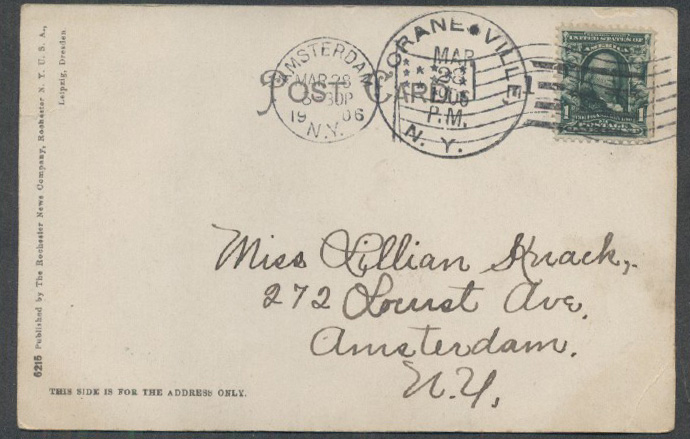 6215 Published by The Rochester News Company, Rochester N. Y. U. S. A.,
Leipzig, Dresden
POST CARD
AMSTERDAM
MAR 28
1906
N.Y.
CRANESVILLE,
MAR
28
1906
P.M.
N. Y.
1
UNITED STATES OF
AMERICA
1 1
POSTAGE
Miss Lillian Knack,
272 Locust Ave,
Amsterdam.
N.Y,
THIS SIDE IS FOR THE ADDRESS ONLY.